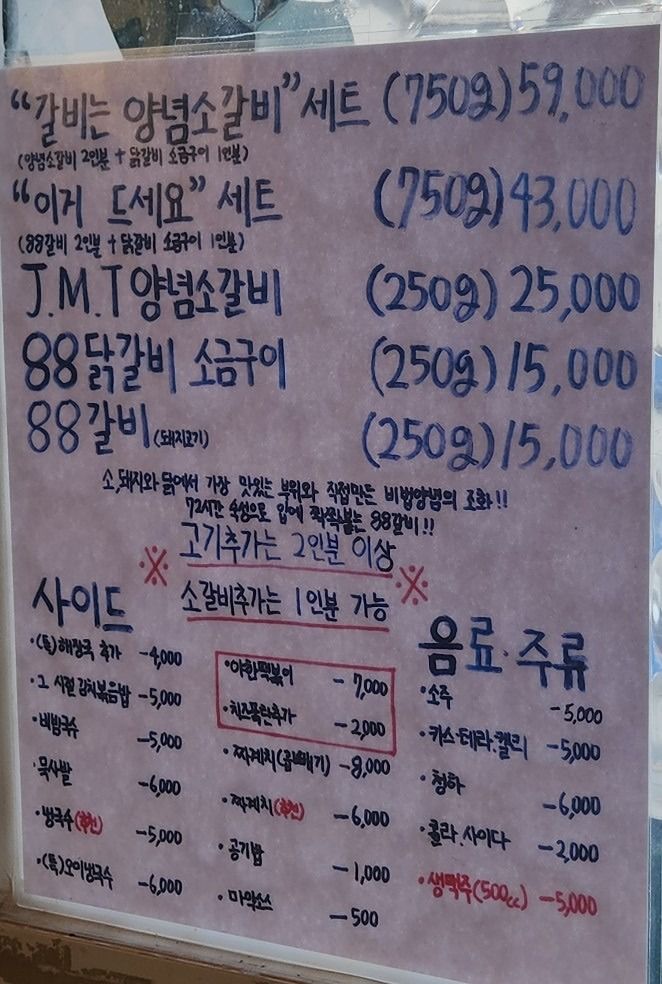 “갈비는 양념소갈비” 세트 (750g) 59,000
(양념소갈비 2인분 + 닭갈비 소금구이 1인분)
“이거 드세요” 세트 (750g) 43,000
(88갈비 2인분 + 닭갈비 소금구이 1인분)
J.M.T 양념소갈비 (250g) 25,000
88닭갈비 소금구이 (250g) 15,000
88갈비 (돼지고기) (250g) 15,000
소,돼지와 닭에서 가장 맛있는 부위와 직접만든 비법양념의 조화!!
72시간 숙성으로 입에 쫙쫙붙는 88갈비!!
※ 고기추가는 2인분 이상 ※
소갈비추가는 1인분 가능
사이드
·(특)해장국 추가 -4,000
·그 시절 김치볶음밥 -5,000
·비빔국수 -5,000
·묵사발 -6,000
·냉국수(추천) -5,000
·(특)오이냉국수 -6,000
·야한떡볶이 -7,000
·치즈폭탄추가 -2,000
·짜계치(곱빼기) -8,000
·짜계치(추천) -6,000
·공기밥 -1,000
·마약소스 -500
음료·주류
·소주 -5,000
·카스·테라·켈리 -5,000
·청하 -6,000
·콜라.사이다 -2,000
·생맥주(500cc) -5,000